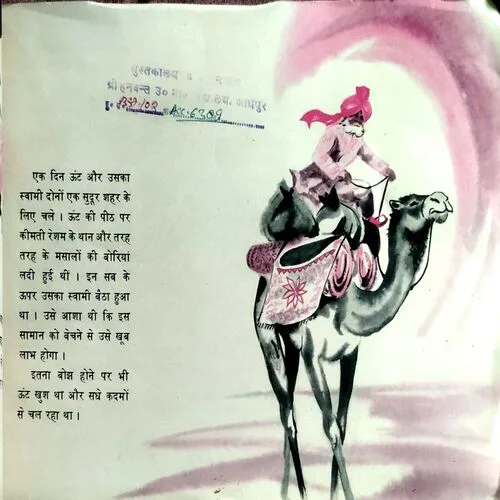 पुस्तकालय
श्री हनवन्त उ० मा०
एक दिन ऊंट और उसका
स्वामी दोनों एक सुदूर शहर के
लिए चले । ऊंट की पीठ पर
कीमती रेशम के थान और तरह
तरह के मसालों की बोरियां
लदी हुई थीं । इन सब के
ऊपर उसका स्वामी बैठा हुआ
था । उसे आशा थी कि इस
सामान को बेचने से उसे खूब
लाभ होगा ।
इतना बोझ होने पर भी
ऊंट खुश था और सधे कदमों
से चल रहा था ।